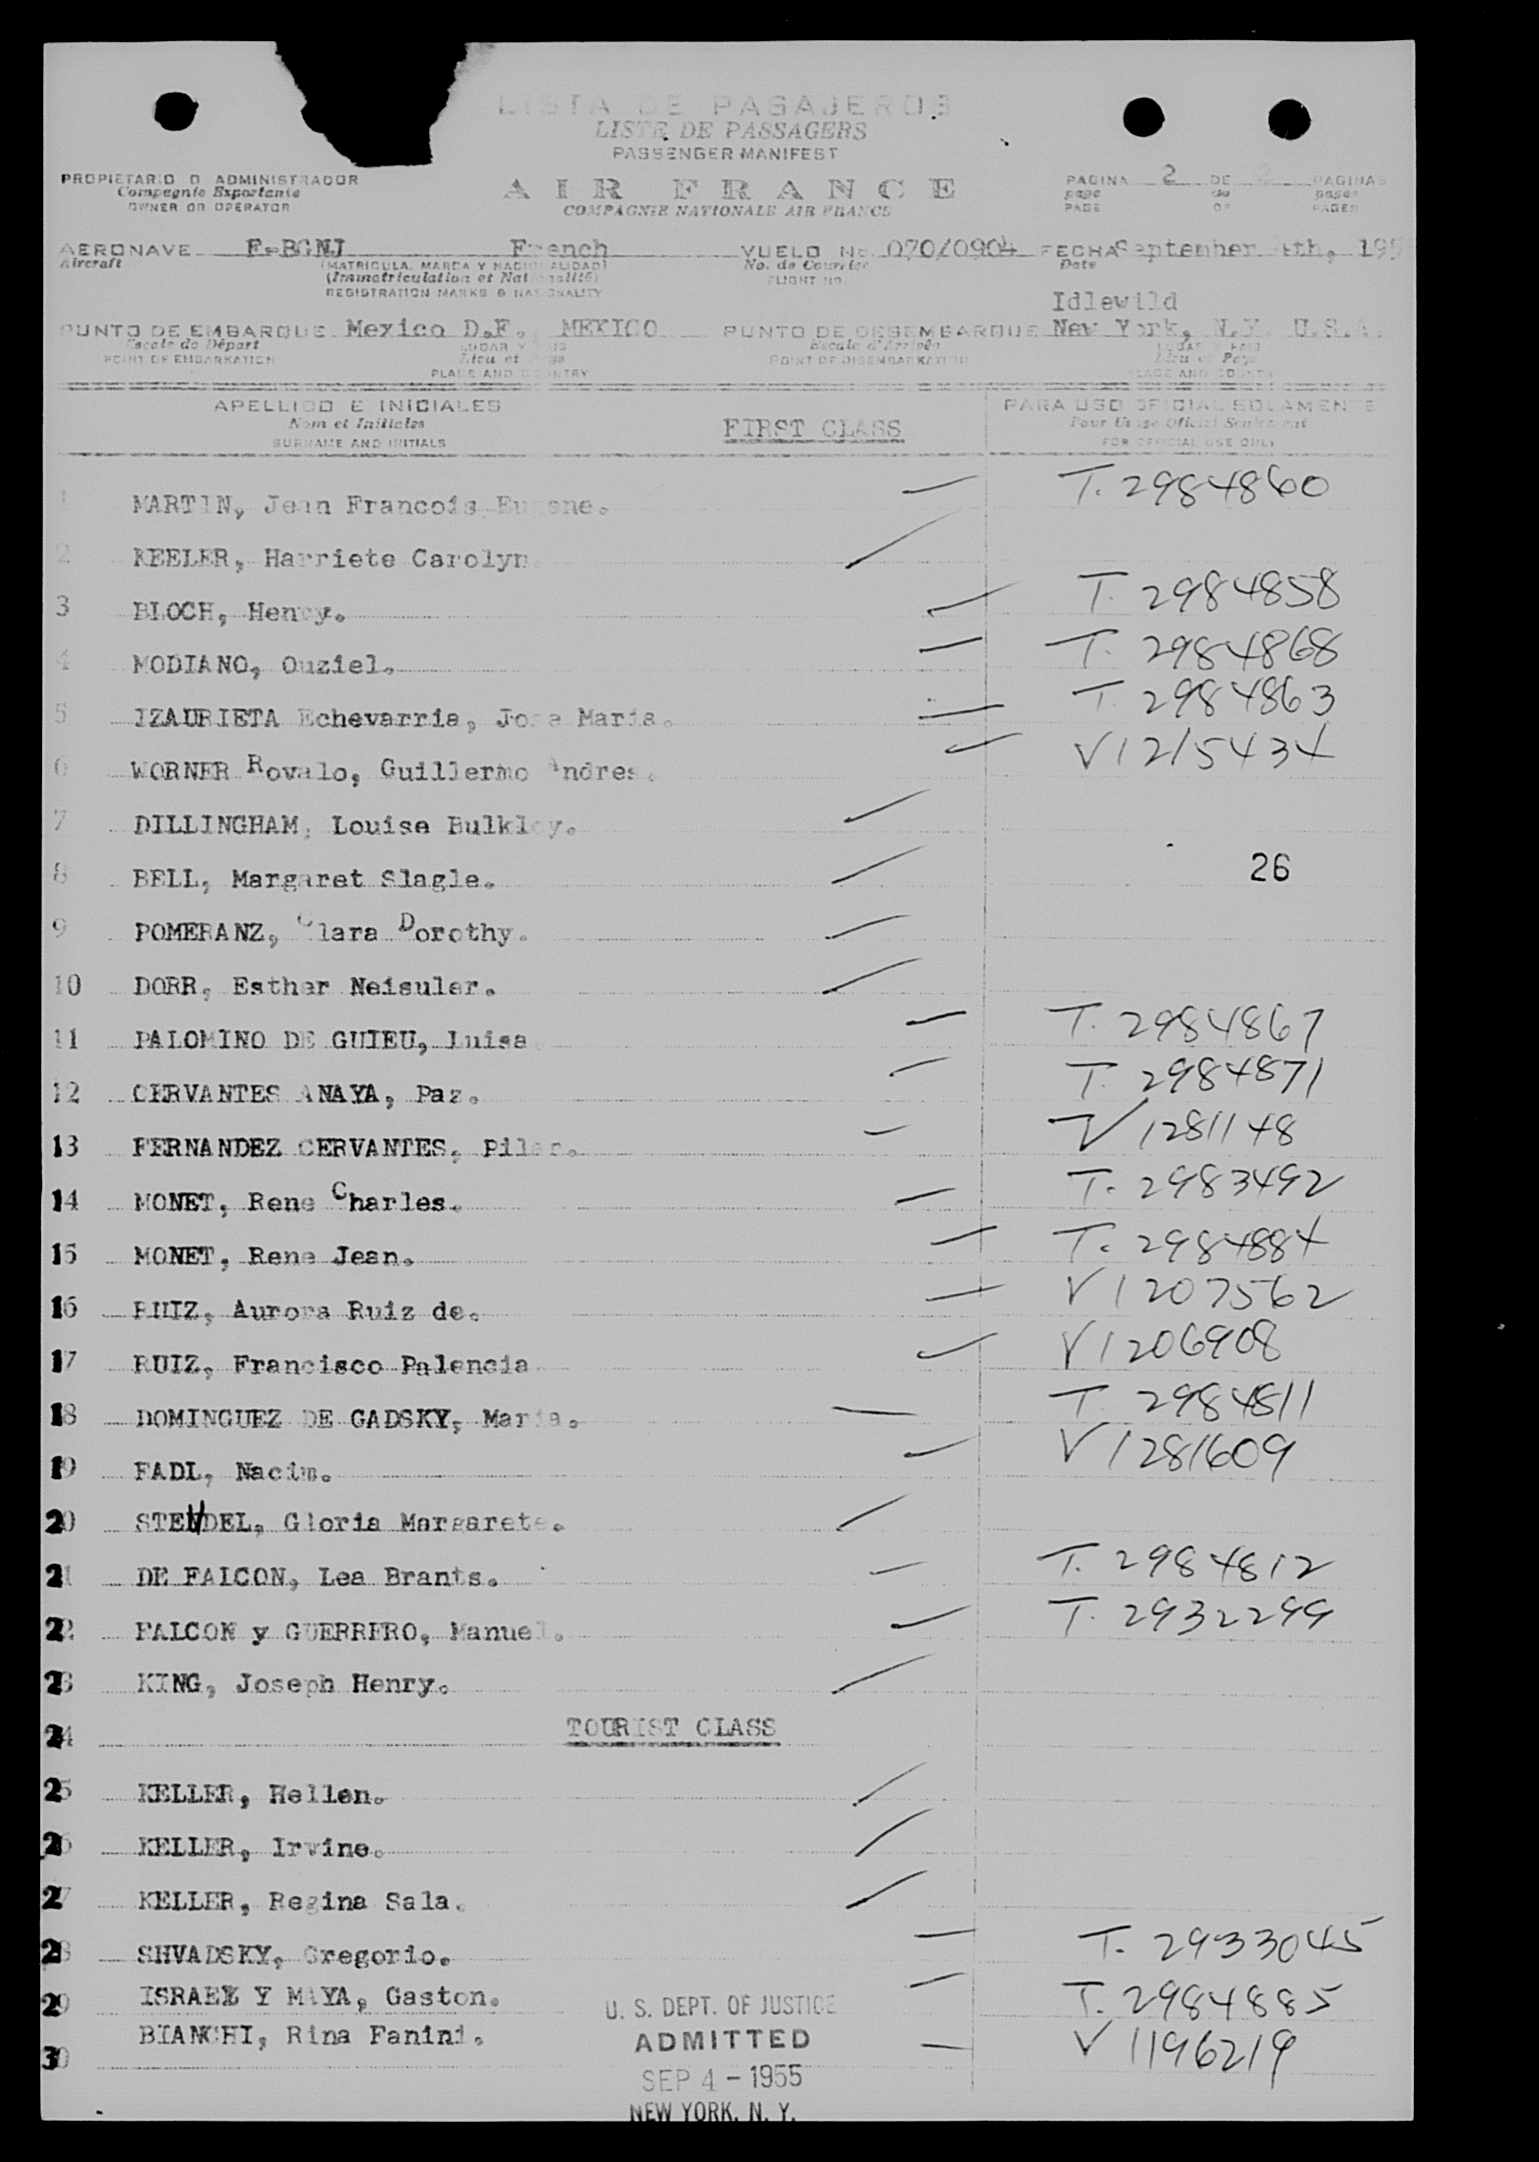 LISTA DE PASAJEROS
LISTE DE PASSAGERS
PASSENGER MANIFEST
PROPIETARIO O ADMINISTRADOR
Compagnie Exportante
OWNER OR OPERATOR
AIR FRANCE
COMPAGNIE NATIONALE AIR FRANCE
PAGINA 2 DE PAGINAS
page de pages
PAGE OF PAGES
AERONAVE F-BGNJ French VUELO No. 070/0904 FECHA September 4th, 195
Aircraft (MATRICULA, MARCA Y NACIONALIDAD) No. de Courrier Date
(Immatriculation et Nationalité) FLIGHT No.
REGISTRATION MARKS & NATIONALITY
Idlewild
PUNTO DE EMBARQUE Mexico D.F. MEXICO PUNTO DE DESEMBARQUE New York, N.Y. U.S.A.
Escale de Départ LUGAR Y PAIS Escale d'Arrivée LUGAR Y PAIS
POINT OF EMBARKATION Lieu et Pays POINT OF DISEMBARKATION Lieu et Pays
PLACE AND COUNTRY PLACE AND COUNTRY
APELLIDO E INICIALES PARA USO OFICIAL SOLAMENTE
Nom et Initiales FIRST CLASS Pour Usage Officiel Seulement
SURNAME AND INITIALS FOR OFFICIAL USE ONLY
1 MARTIN, Jean Francois Eugene. T. 2984860
2 KEELER, Harriete Carolyn
3 BLOCH, Henry. T. 2984858
4 MODIANO, Ouziel. T. 2984868
5 IZAURIETA Echevarria, Jose Maria. T 2984863
6 WORNER Rovalo, Guillermo Andres. V1215434
7 DILLINGHAM, Louise Bulkley.
8 BELL, Margaret Slagle. 26
9 POMERANZ, Clara Dorothy.
10 DORR, Esther Neisuler.
11 PALOMINO DE GUIEU, Luisa T. 2984867
12 CERVANTES ANAYA, Paz. T. 2984871
13 FERNANDEZ CERVANTES, Pilar. V 1281148
14 MONET, Rene Charles. T. 2983492
15 MONET, Rene Jean. T. 2984884
16 RUIZ, Aurora Ruiz de. V1207562
17 RUIZ, Francisco Palencia V1206908
18 DOMINGUEZ DE GADSKY, Maria. T 2984811
19 FADL, Nacim. V1281609
20 STENDEL, Gloria Margarete.
21 DE FALCON, Lea Brants. T. 2984812
22 FALCON y GUERRERO, Manuel. T. 2932299
23 KING, Joseph Henry.
24 TOURIST CLASS
25 KELLER, Hellen.
26 KELLER, Irvine.
27 KELLER, Regina Sala.
28 SHVADSKY, Gregorio. T. 2933045
29 ISRAEL Y MAYA, Gaston. T. 2984885
30 BIANCHI, Rina Fanini. V 1196219
U. S. DEPT. OF JUSTICE
ADMITTED
SEP 4 - 1955
NEW YORK, N. Y.